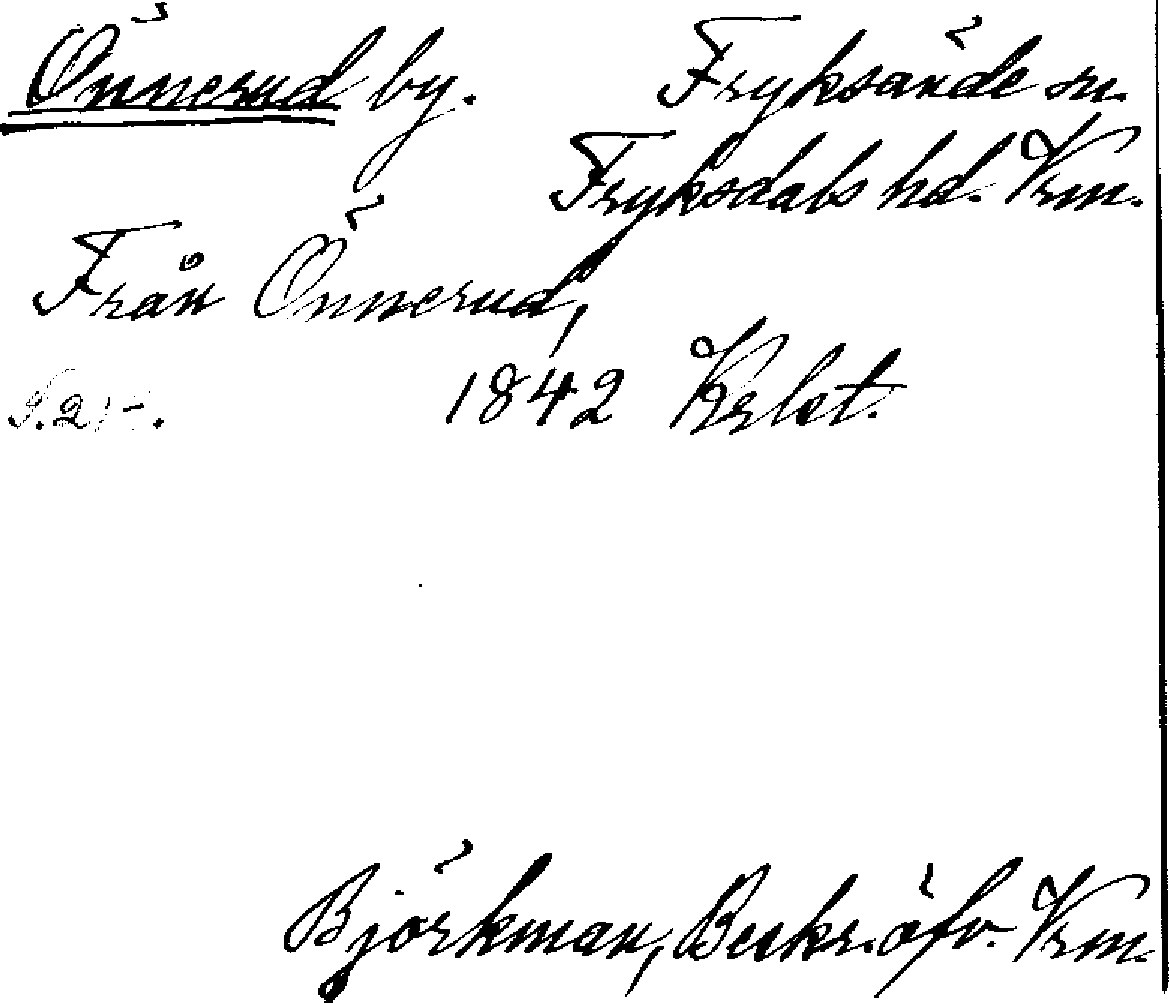 Önnerud by. Fryksände sn.
Fryksdals hd. Vrm.
Från Önnerud,
1842
Björkman, Beskr. öfv. Vrm.